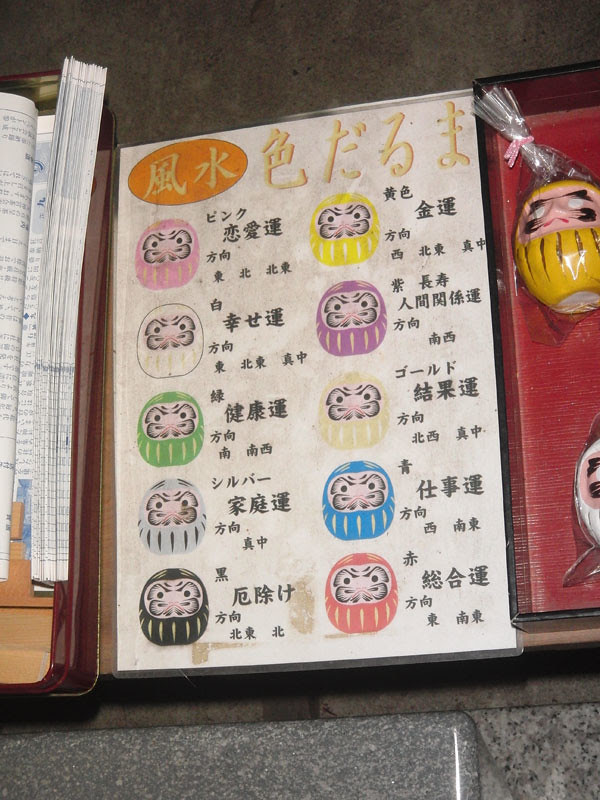 風水 色だるま
ピンク
恋愛運
方向
東 北 北東
白
幸せ運
方向
東 北東 真中
緑
健康運
方向
南 南西
シルバー
家庭運
方向
真中
黒
厄除け
方向
北東 北
黄色
金運
方向
西 北東 真中
紫 長寿
人間関係運
方向
南西
ゴールド
結果運
方向
北西 真中
青
仕事運
方向
西 南東
赤
総合運
方向
東 南東